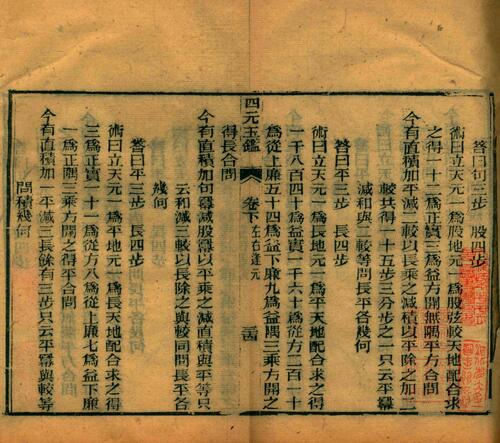 答曰句三步 股四步
術曰立天元一爲股地元一爲股弦較天地配合求之
之得一十二爲正實三爲益方開無隅平方合問
今有直積減平減二較以長乘之減積以平除之加二
較共得一十五步三分步之一只云平冪
減和與二較等問長平各幾何
答曰平三步 長四步
術曰立天元一爲平地元一爲長天地配合求之得
一千八百四十爲益實一千六十爲從方二百一十
爲從上廉五十四爲益下廉九爲益隅三乘方開之
得長合問
四元玉鑑 卷下 左右逢元
今有直積加句冪減股冪以平乘之減直積與平等只
云和減三較以長除之與較同問長平各
幾何
答曰平三步 長四步
術曰立天元一爲平地元一爲長天地配合求之得
三爲正實一十一爲從方八爲從上廉七爲益下廉
一爲正隅三乘方開之得平合問
今有直積加一平減三長餘有三步只云平冪與較等
問積幾何